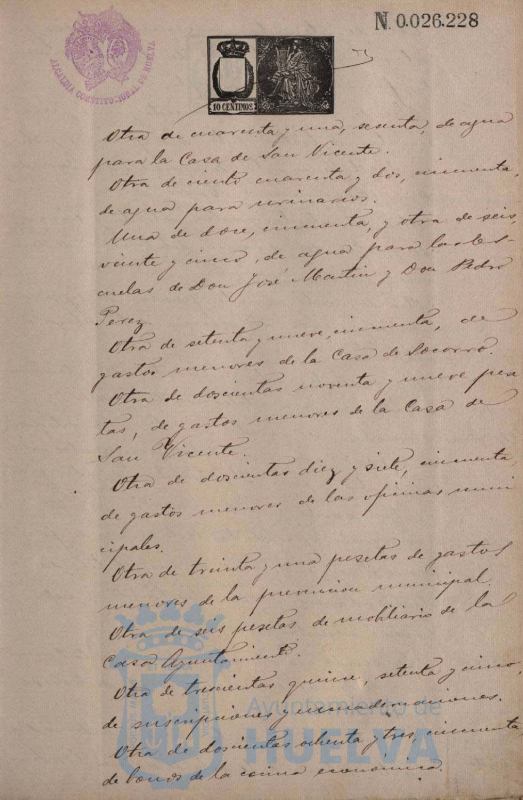 N. 0.026.228
ALCALDIA CONSTITUCIONAL DE HUELVA
10 CENTIMOS
Otra de cuarenta y una, sesenta, de agua
para la Casa de San Vicente.
Otra de ciento cuarenta y dos, cincuenta,
de agua para urinarios.
Una de doce, cincuenta, y otra de seis,
veinte y cinco, de agua para las Es-
cuelas de Don José Martin y Don Pedro
Perez
Otra de setenta y nueve, cincuenta, de
gastos menores de la Casa de Socorro.
Otra de doscientas noventa y nueve pese
tas, de gastos menores de la Casa de
San Vicente.
Otra de doscientas diez y siete, cincuenta,
de gastos menores de las oficinas muni
cipales.
Otra de treinta y una pesetas de gastos
menores de la prevencion municipal.
Otra de seis pesetas de mobiliario de la
Casa Ayuntamiento.
Otra de trescientas quince, setenta y cinco,
de suscripciones y encuadernaciones.
Otra de doscientas ochenta y tres, cincuenta
de bonos de la cocina economica.
Ayuntamiento de
HUELVA